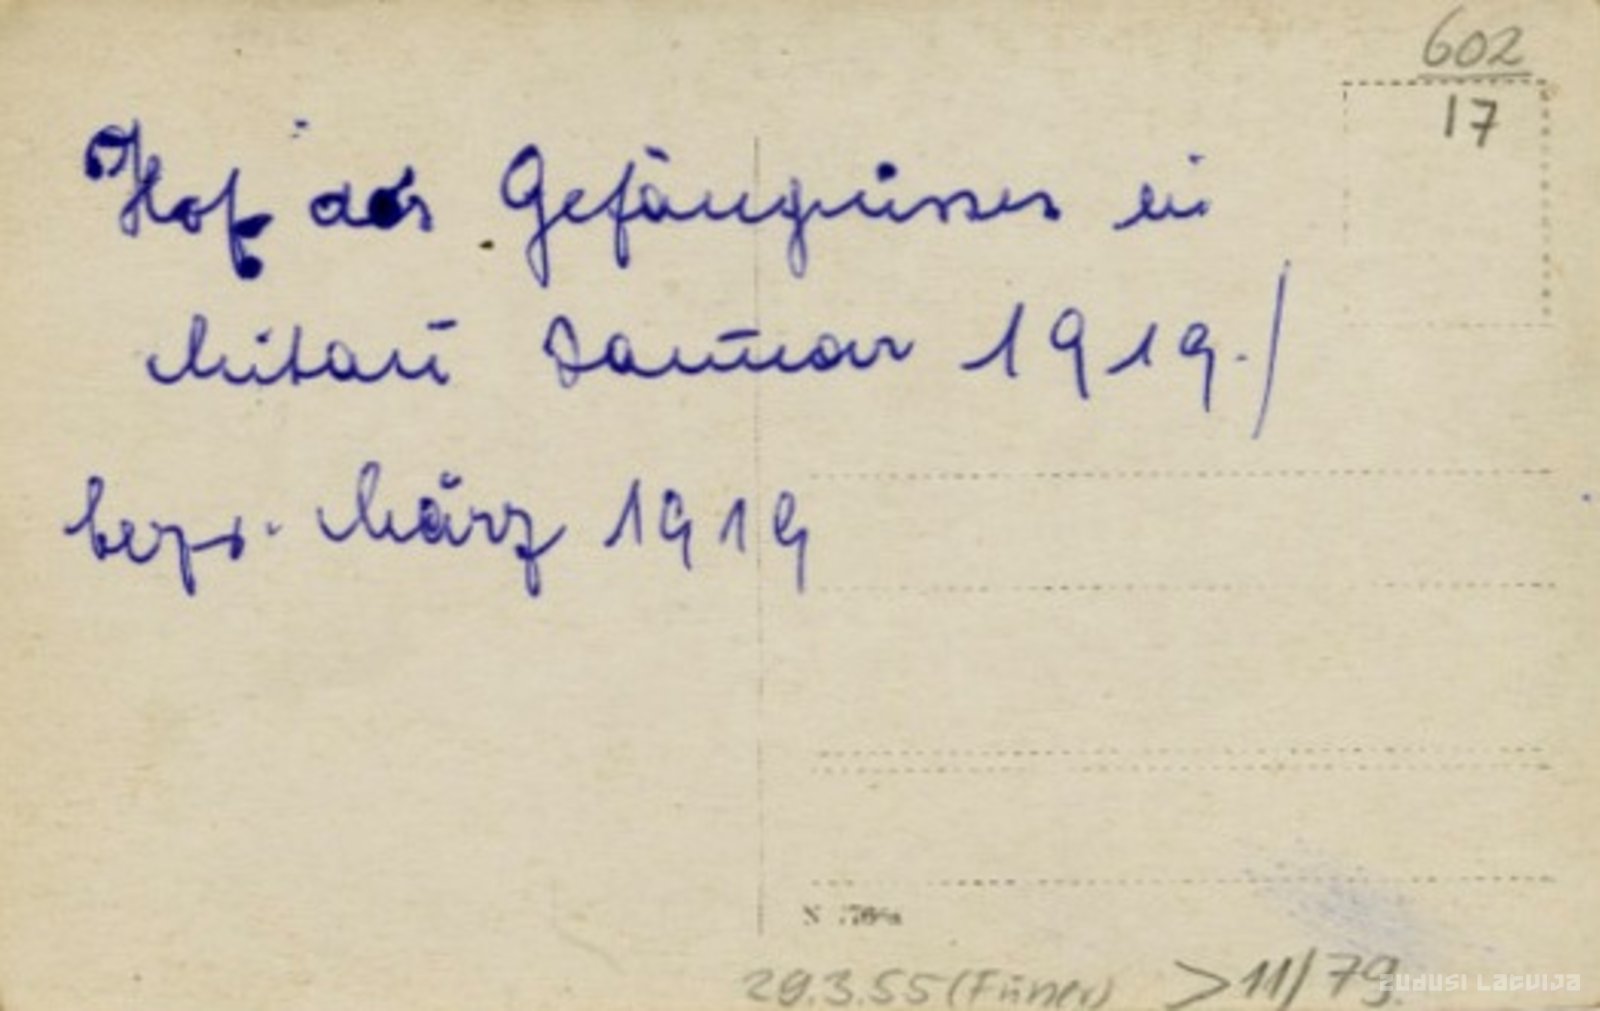 602
17
Hof des Gefängnisses in
Mitau Januar 1919./
bezw. März 1919
29.3.55 ( > 11/79.
zudusi Latvija